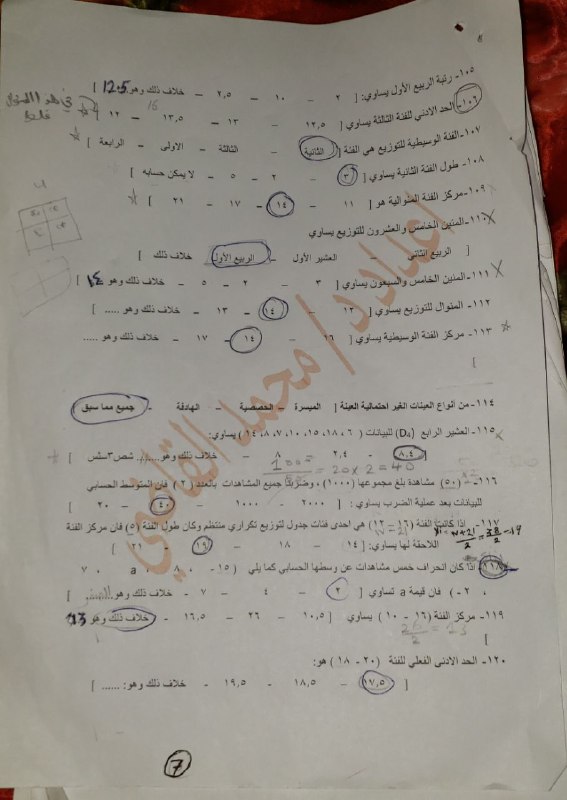 ١٠٥- رتبة الربيع الأول يساوي: [ ٢ - ١٠ - ٢,٥ - خلاف ذلك وهو 12.5 ]
١٠٦- الحد الادنى للفئة الثالثة يساوي [ ١٢,٥ - ١٣ - ١٣,٥ - ١٢ ]
16
١٠٧- الفئة الوسيطية للتوزيع هي الفئة [ الثانية - الثالثة - الاولى - الرابعة ]
١٠٨- طول الفئة الثانية يساوي [ ٣ - ٢ - ٥ - لا يمكن حسابه ]
١٠٩- مركز الفئة المنوالية هو [ ١١ - ١٤ - ١٧ - ٢١ ]
١١٠- المئين الخامس والعشرون للتوزيع يساوي
[ الربيع الثاني - العشير الأول - الربيع الأول - خلاف ذلك ]
١١١- المئين الخامس والسبعون يساوي [ ٣ - ٢ - ٥ - خلاف ذلك وهو ١٤ ]
١١٢- المنوال للتوزيع يساوي [ ١٢ - ١٤ - ١٣ - خلاف ذلك وهو ..... ]
١١٣- مركز الفئة الوسيطية يساوي [ ٢٦ - ١٤ - ١٧ - خلاف ذلك وهو .....
]
١١٤- من أنواع العينات الغير احتمالية العينة [ الميسرة - الحصصية - الهادفة - جميع مما سبق ]
١١٥- العشير الرابع (D₄) للبيانات ( ٦ ، ١٨ ، ١٥ ، ١٠ ، ٧ ، ٨ ، ١٤ ) يساوي:
[ ٨,٤ - ٢,٤ - ٨ - خلاف ذلك وهو........ ]
20 x 2 = 40
١١٦- (٥٠) مشاهدة بلغ مجموعها (١٠٠٠) ، وضرب جميع المشاهدات بالعدد (٢) فان المتوسط الحسابي
للبيانات بعد عملية الضرب يساوي : [ ٢٠٠٠ - ١٠٠٠ - ٤٠ - ٢٠ ]
١١٧- إذا كانت الفئة (١٢ – ١٦) هي احدى فئات جدول لتوزيع تكراري منتظم وكان طول الفئة (٥) فان مركز الفئة
اللاحقة لها يساوي: [ ١٤ - ١٨ - ١٩ - ٢١ ]
17+21/2 = 38/2 = 19
١١٨- اذا كان انحراف خمس مشاهدات عن وسطها الحسابي كما يلي ( ١٥- ، ٨ ، a ، ٧
، ٢- ) فان قيمة a تساوي [ ٢ - ٤ - ٧ - خلاف ذلك وهو
١١٩- مركز الفئة (١٦ - ١٠) يساوي [ ١٠,٥ - ٢٦ - ١٦,٥ - خلاف ذلك وهو 13
26/2 = 13
]
١٢٠- الحد الادنى الفعلي للفئة (٢٠ - ١٨) هو:
[ ١٧,٥ - ١٨,٥ - ١٩,٥ - خلاف ذلك وهو: ...... ]
اعداد د/ محمد القاضي
7